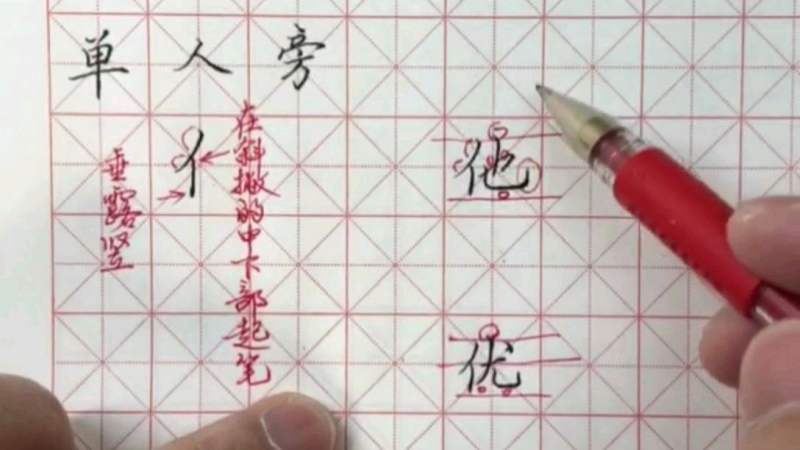 单人旁
亻
垂露竖
在斜撇的中下部起笔
他
优